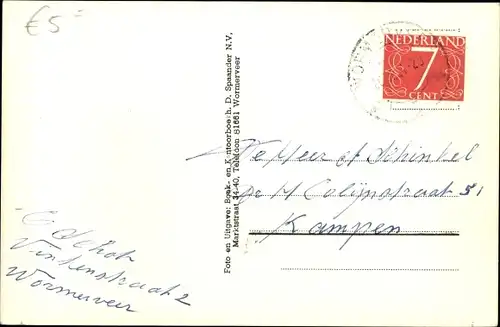 €5-
NEDERLAND
7
CENT
WORMER
Foto en Uitgave: Boek- en Kantoorboekh. D. Spaander N.V,
Marktstraat 34-40, Telefoon 81661 Wormerveer
Schinkel
Dr H Colijnstraat 51
Kampen
Schot
Vinkenstraat 2
Wormerveer